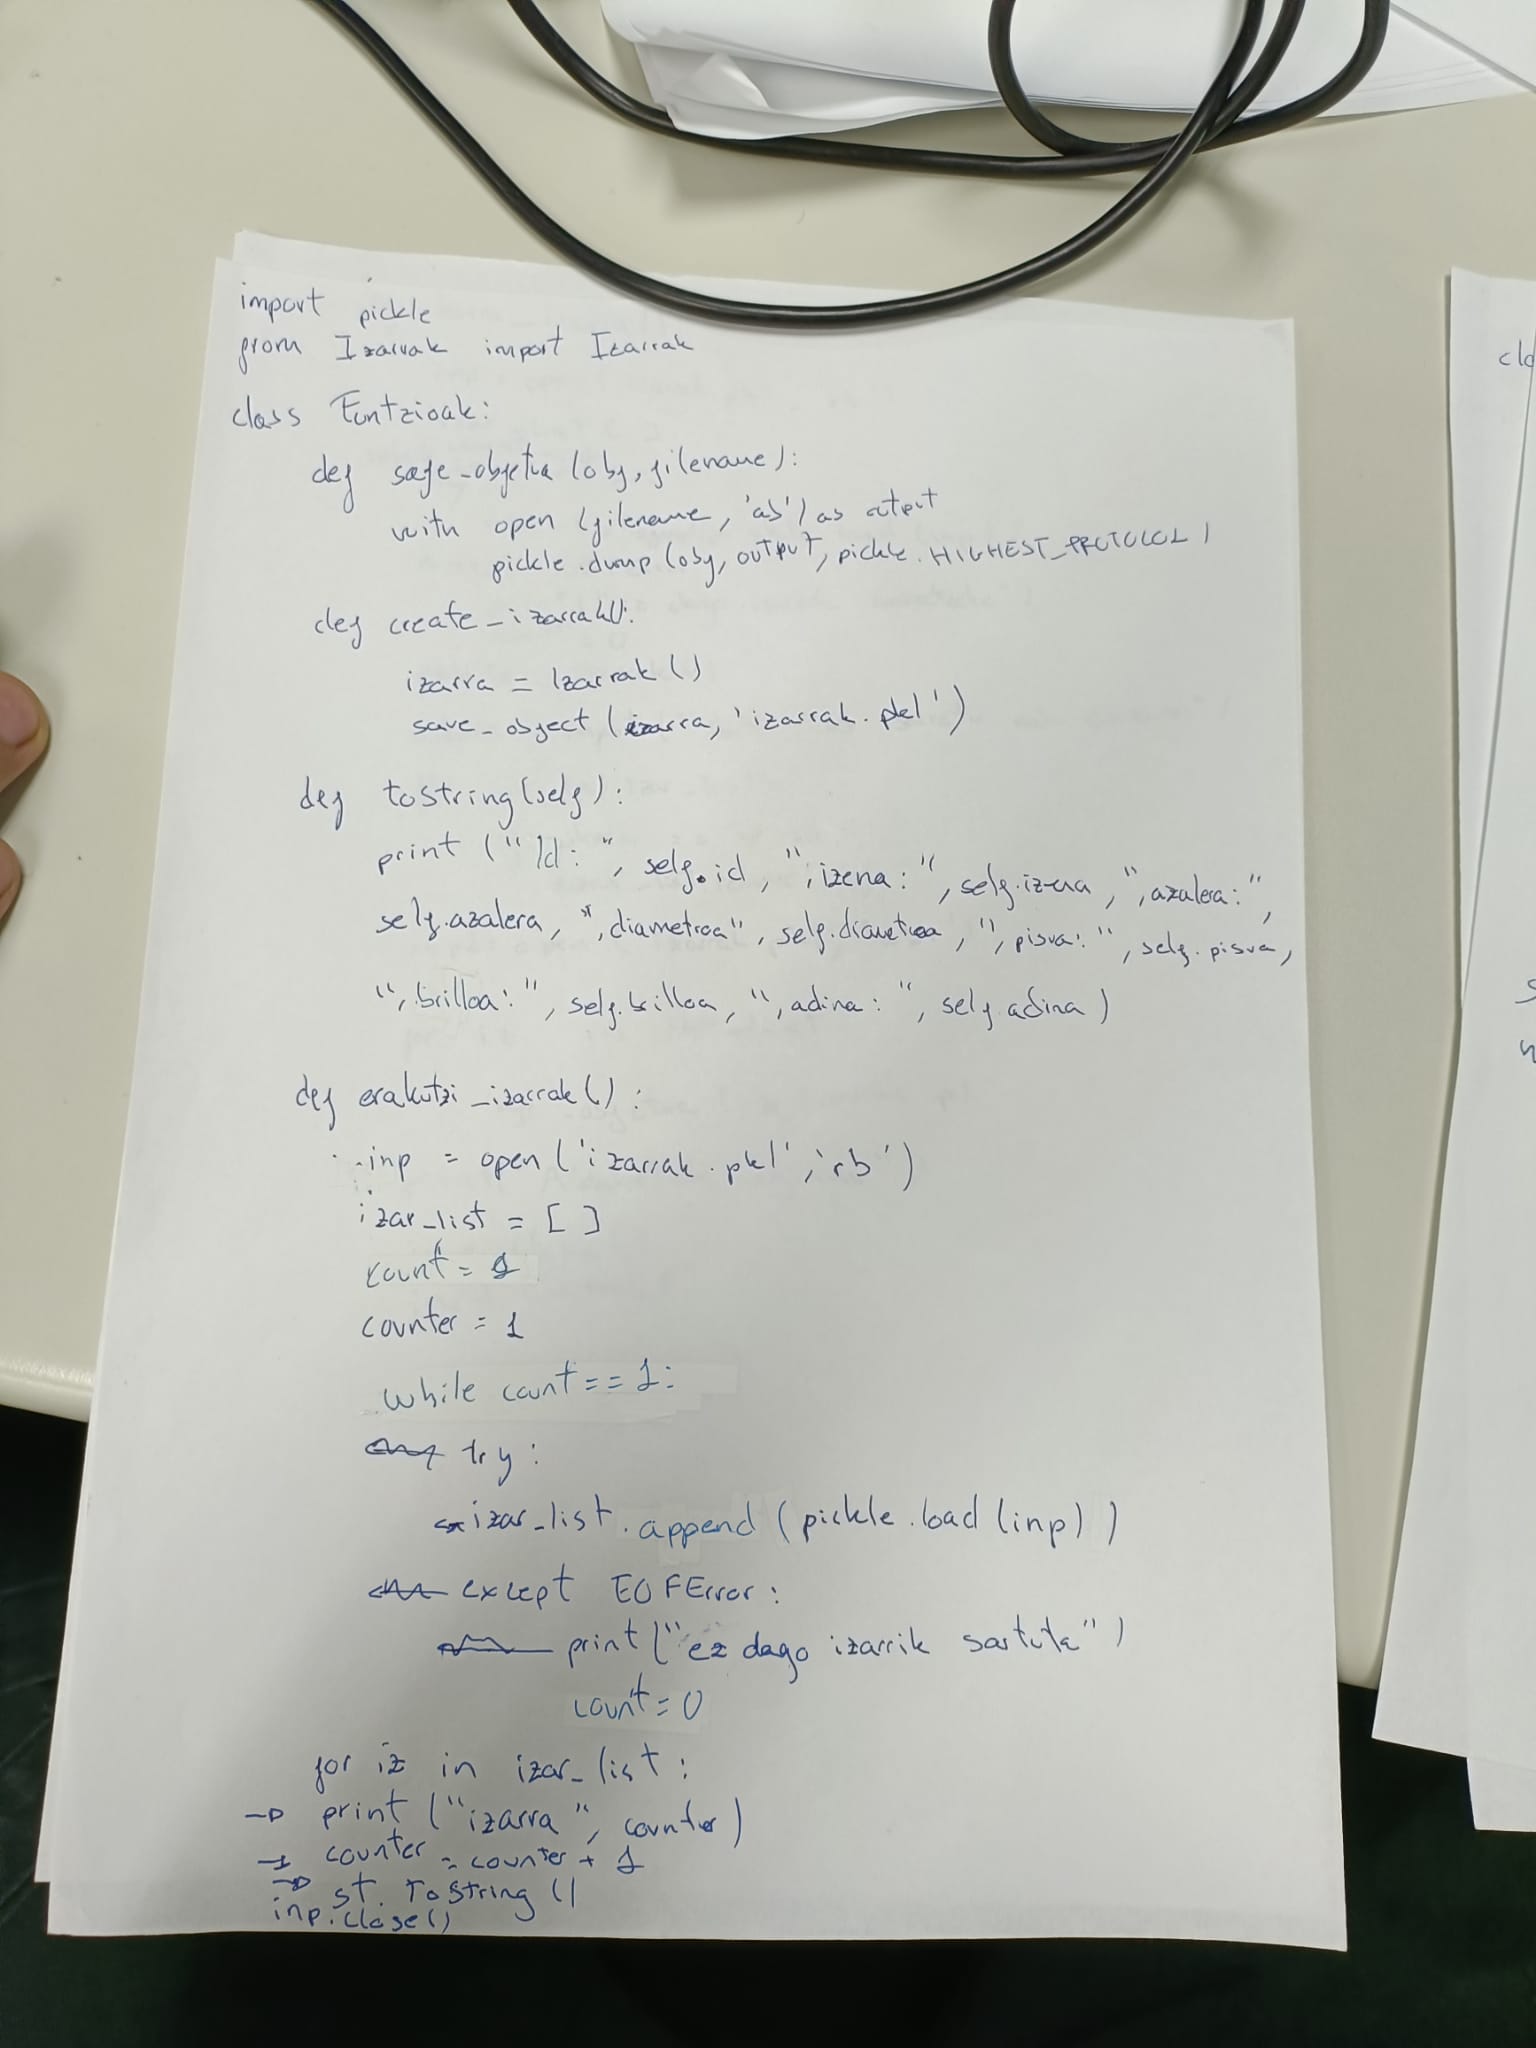 import pickle
from Izarrak import Izarrak
class Funtzioak:
def safe_objetua (obj, filename):
with open (filename, 'ab') as output
pickle.dump (obj, output, pickle.HIGHEST_PROTOCOL)
def create_izarrak():
izarra = Izarrak ()
save_object (izarra, 'izarrak.pkl')
def tostring(self):
print ("Id: ", self.id, ", izena: ", self.izena, ", azalera: ",
self.azalera, ", diametroa", self.diametroa, ", pisua: ", self.pisua,
", brilloa: ", self.brilloa, ", adina: ", self.adina)
def erakutzi_izarrak():
inp = open ('izarrak.pkl', 'rb')
izar_list = [ ]
count = 1
counter = 1
while count == 1:
try:
izar_list.append (pickle.load (inp))
except EOFError:
print ("ez dago izarrik sartuta")
count = 0
for iz in izar_list:
→ print ("izarra", counter)
→ counter = counter + 1
→ st.ToString ()
inp.close()
cla